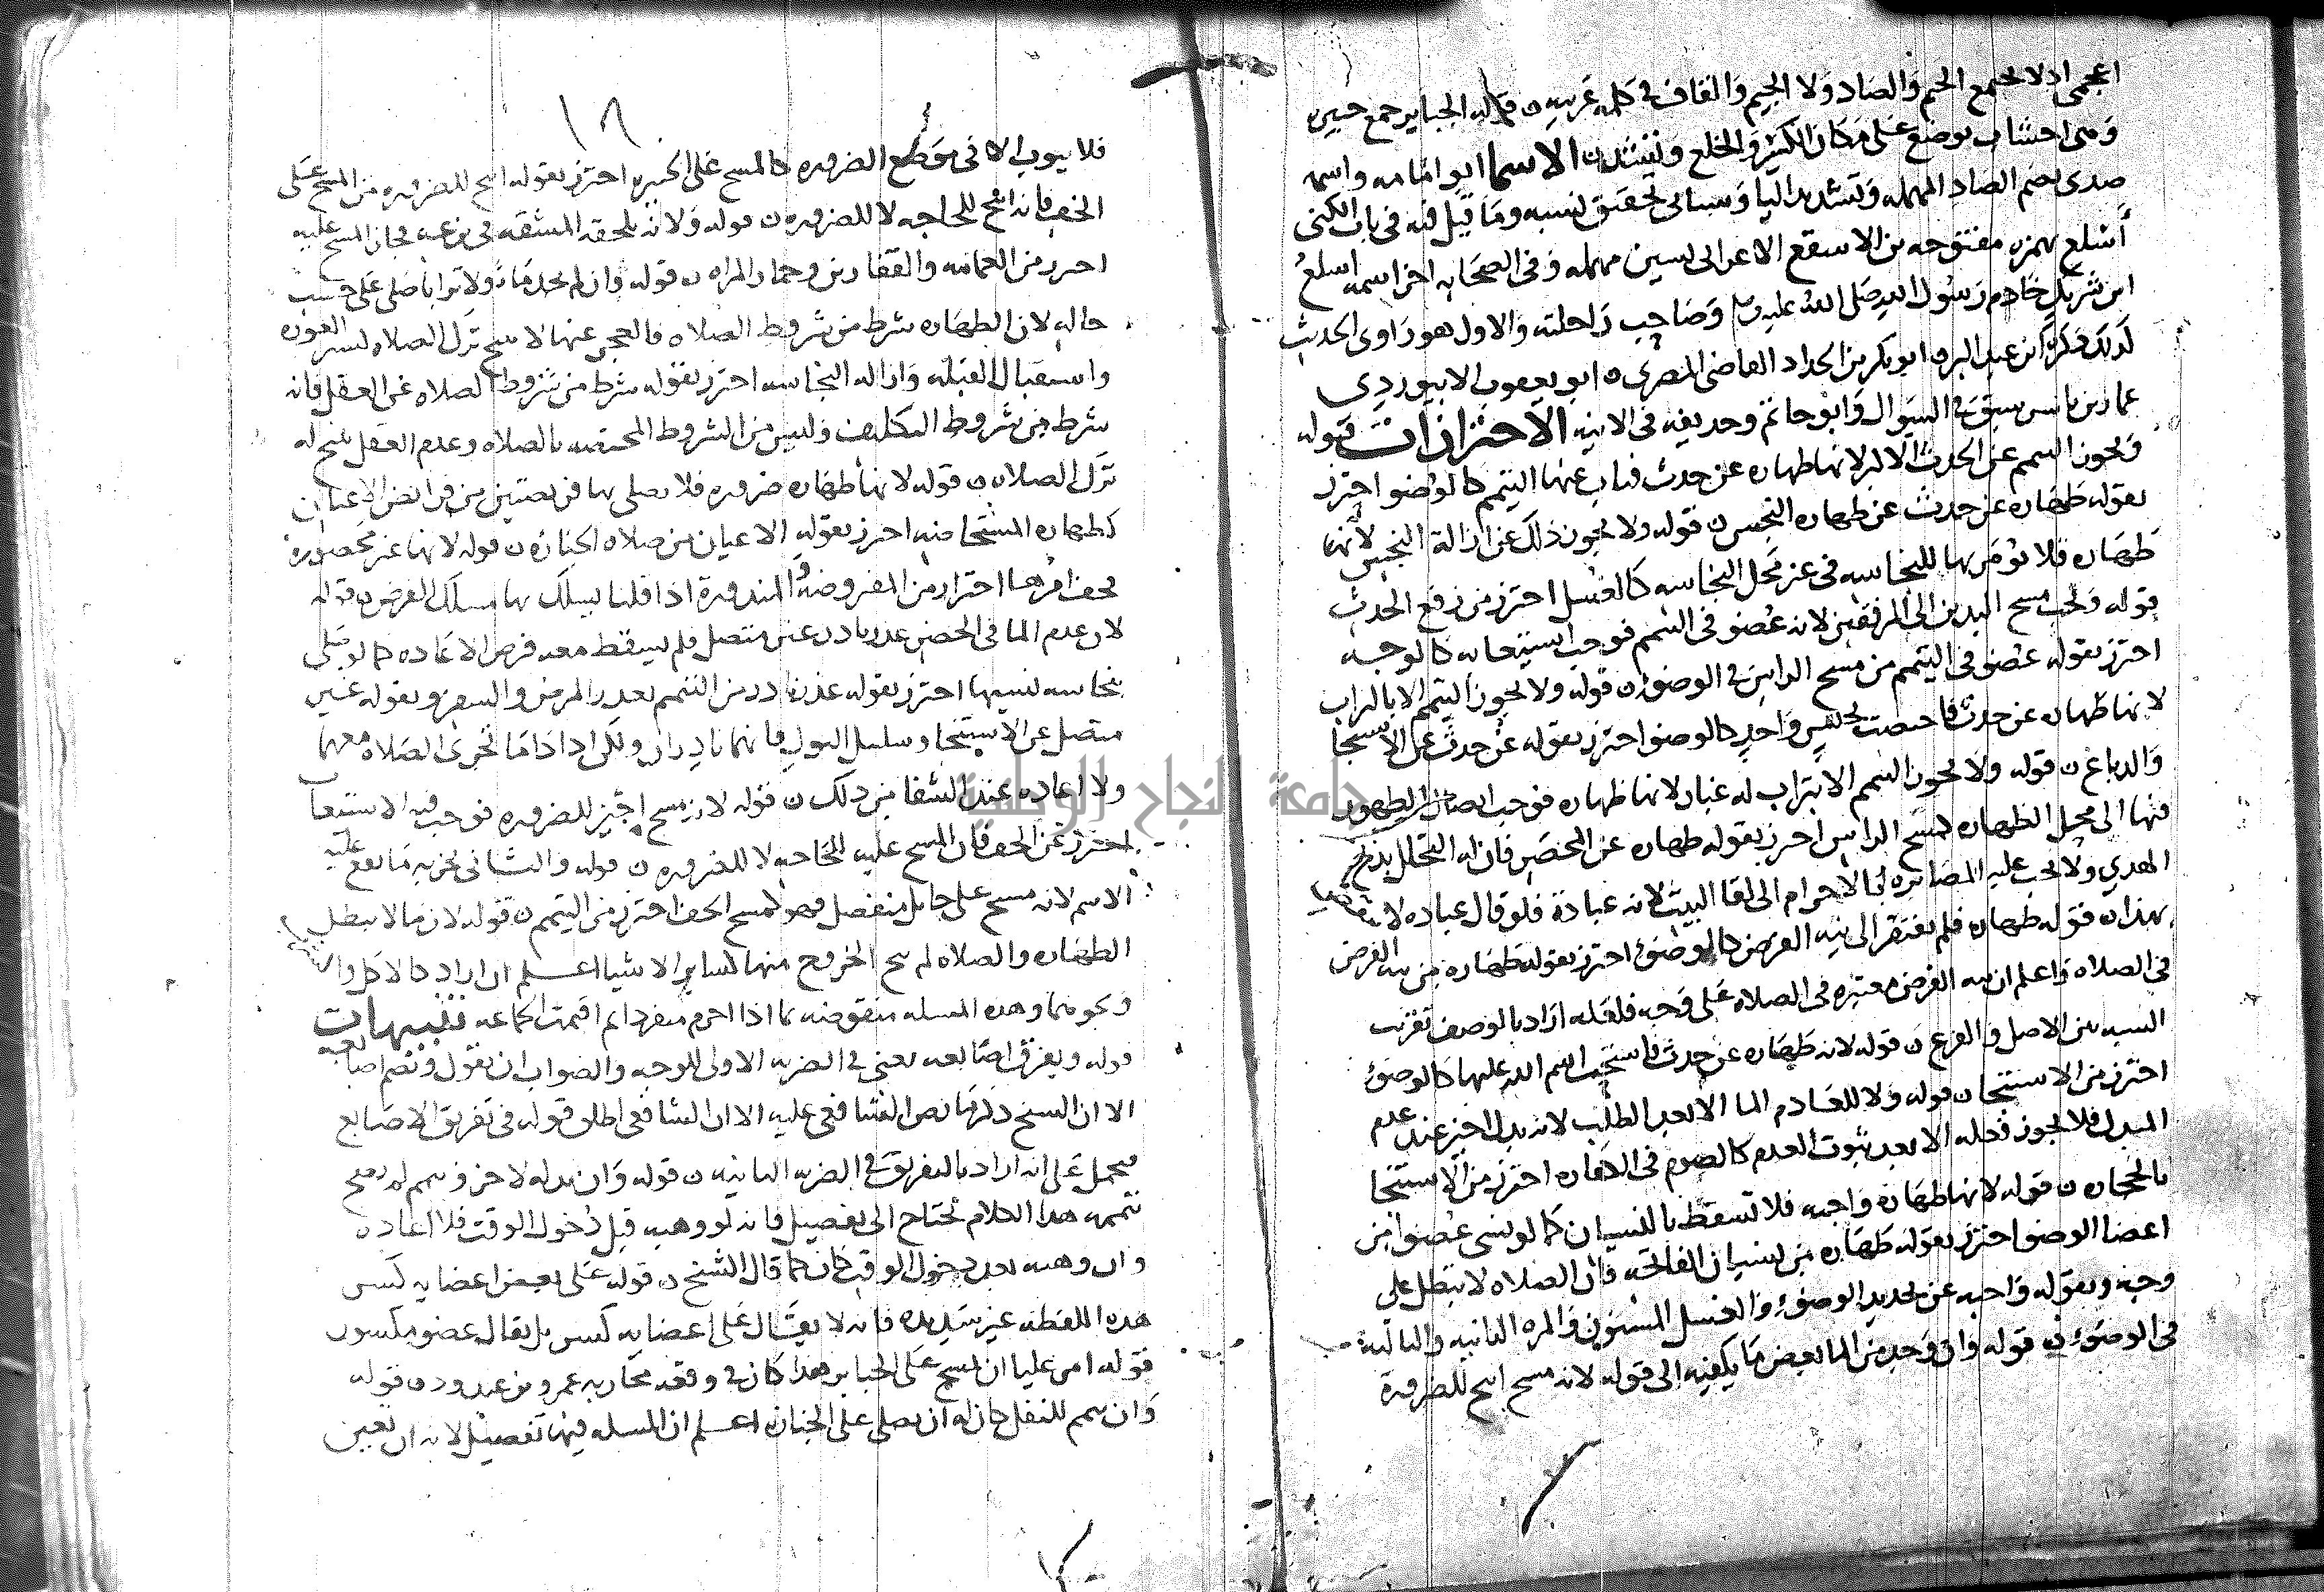 اعجمى اذ لا يجتمع الجيم والصاد ولا الجيم والقاف فى كلمه عربيه ن قوله الجباير جمع جبيره
وهى اخشاب توضع على مكان الكسر والخلع وتشد ن الاسما ابو امامه واسمه
صدى بضم الصاد المهمله وتشديد اليا وسياتى تحقيق نسبه وما قيل فيه فى باب الكنى
أسلع بهمزه مفتوحه بن الاسقع الاعرابى بسين مهمله وفى الصحابه اخر اسمه اسلع
ابن شريك خادم رسول الله صلى الله عليه وسلم وصاحب راحلته والاول هو راوى الحديث
كذلك ذكره ابن عبد البر ه ابو بكر بن الحداد القاضى المصرى ه ابو يعقوب الابيوردى
عمار بن ياسر سبق فى السواك وابو حاتم وحذيفه فى الانيه الاحترازات قوله
ويجوز التيمم عن الحدث الاكبر لانها طهاره عن حدث فناب عنها التيمم كالوضو احترز
بقوله طهاره عن حدث عن طهاره النجس ن قوله ولا يجوز ذلك عن ازالة النجس لانها
طهاره فلا يؤمر بها للنجاسه فى غير محل النجاسه كالغسل احترز من رفع الحدث
قوله ويجب مسح اليدين الى المرفقين لانه عضو فى التيمم فوجب استيعابه كالوجه
احترز بقوله عضو فى التيمم من مسح الراس فى الوضو ن قوله ولا يجوز التيمم الا بالتراب
لانها طهاره عن حدث فاختصت بجنس واحد كالوضو احترز بقوله عن حدث عن الاستنجا
والدباغ ن قوله ولا يجوز التيمم الا بتراب له غبار لانها طهاره فوجب ايصال الطهور
فيها الى محل الطهاره كمسح الراس احترز بقوله طهاره عن المحصر فان له التحلل بذبح
الهدي ولا يجب عليه المصابره بالاحرام الى لقا البيت لانه عبادة فلو قال عباده لانتقض
بهذا ن قوله طهاره فلم يفتقر الى نيه الفرض كالوضوء احترز بقوله طهاره من نيه الفرض
فى الصلاه واعلم ان نيه الفرض معتبره فى الصلاه على وجه فلعله اراد بالوصف تقريب
الشبه بين الاصل والفرع ن قوله لانه طهاره عن حدث فاستحب اسم الله عليها كالوضوء
احترز من الاستنجا ن قوله ولا للعادم الما الا بعد الطلب لانه بدل اجيز عند عدم
المبدل فلا يجوز فعله الا بعد ثبوت العدم كالصوم فى الكفاره احترز من الاستنجا
بالحجاره ن قوله لانها طهاره واجبه فلا تسقط بالنسيان كما لو نسى عضوا من
اعضا الوضو احترز بقوله طهاره من نسيان الفاتحه فان الصلاه لا تبطل على
وجه وبقوله واجبه عن تجديد الوضوء والغسل المسنون والمره الثانيه والثالثة
فى الوضوء ن قوله وان وجد من الما بعض ما يكفيه الى قوله لانه مسح ابيح للضرورة
١٦
فلا ينوب الا فى موضع الضروره كالمسح على الجبيره احترز بقوله ابيح للضروره من المسح على
الخف فانه ابيح للحاجه لا للضروره ن قوله ولانه يلحقه المشقه فى نزعه فجاز المسح عليه
احترز من العمامه والقفازين وخمار المراه ن قوله وان لم يجد ماء ولا ترابا صلى على حسب
حاله لان الطهاره شرط من شروط الصلاه فالعجز عنها لا يبيح ترك الصلاه كستر العوره
واستقبال القبله وازاله النجاسه احترز بقوله شرط من شروط الصلاه عن العقل فانه
شرط من شروط التكليف وليس من الشروط المختصه بالصلاه وعدم العقل يبيح له
ترك الصلاه ن قوله لانها طهاره ضروره فلا يصلى بها فريضتين من فرايض الاعيان
كطهاره المستحاضه احترز بقوله الاعيان من صلاه الجنازه ن قوله لانها غير محصورة
فخف امرها احتراز من المفروضه والمنذورة اذا قلنا يسلك بها مسلك الفرض ن قوله
لان عدم الما فى الحضر عذر نادر غير متصل فلم يسقط معه فرض الاعاده كما لو صلى
بنجاسه نسيها احترز بقوله عذر نادر من التيمم بعذر المرض والسفر وبقوله غير
متصل عن الاستحاضه وسلس البول فانهما نادران ولكن اذا داما تجزى الصلاه معهما
ولا اعاده عند الشفا من ذلك ن قوله لانه مسح اجيز للضروره فوجب فيه الاستيعاب
احترز من الخف فان المسح عليه للحاجه لا للضروره ن قوله والثانى يجزيه ما يقع عليه
الاسم لانه مسح على حايل منفصل فهو كمسح الخف احترز من التيمم ن قوله لان ما لا يبطل
الطهاره والصلاه لم يبح الخروج منها كساير الاشيا اعلم ان اراد كالاكل والشرب
ونحوهما وهذه المسله منقوضه بما اذا احرم منفردا ثم اقيمت الجماعه تنبيهات
قوله ويفرق اصابعه يعنى فى الضربه الاولى للوجه والصواب ان يقول ويضم اصابعه
الا ان الشيخ ذكر ما نص الشافعى عليه الا ان الشافعى اطلق قوله فى تفريق الاصابع
فيحمل على انه اراد بالتفريق فى الضربه الثانيه ن قوله وان بذله لاخر وتيمم لم يصح
تيممه هذا الكلام يحتاج الى تفصيل فانه لو وهبه قبل دخول الوقت فلا اعاده
وان وهبه بعد دخول الوقت كان كما قال الشيخ ن قوله على بعض اعضايه كسر
هذه اللفظه غير سديده فانه لا يقال على اعضايه كسر بل يقال عضو مكسور
قوله امر عليا ان يمسح على الجباير هذا كان فى وقعه محاربه عمرو بن عبد ود ن قوله
وان تيمم للنفل جاز له ان يصلى على الجنازه اعلم ان المسله فيها تفصيل لانه ان تعين
جامعة النجاح الوطنية